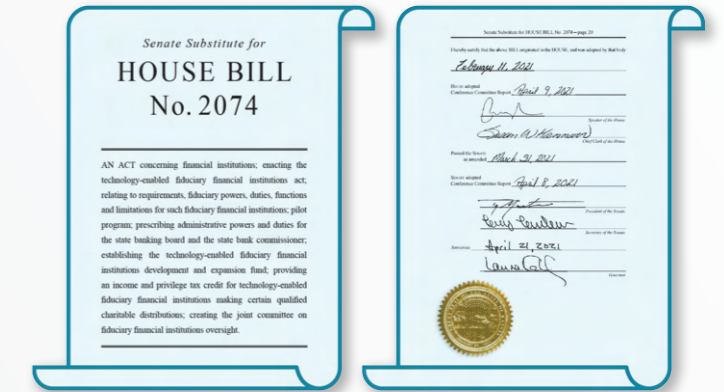 Senate Substitute for
HOUSE BILL
No. 2074
AN ACT concerning financial institutions; enacting the
technology-enabled fiduciary financial institutions act;
relating to requirements, fiduciary powers, duties, functions
and limitations for such fiduciary financial institutions; pilot
program; prescribing administrative powers and duties for
the state banking board and the state bank commissioner;
establishing the technology-enabled fiduciary financial
institutions development and expansion fund; providing
an income and privilege tax credit for technology-enabled
fiduciary financial institutions making certain qualified
charitable distributions; creating the joint committee on
fiduciary financial institutions oversight.
Senate Substitute for HOUSE BILL No. 2074—page 20
I hereby certify that the above BILL originated in the HOUSE, and was adopted by that body
February 11, 2021
House adopted
Conference Committee Report April 9, 2021
Speaker of the House
Chief Clerk of the House
Passed the Senate
as amended March 31, 2021
Senate adopted
Conference Committee Report April 8, 2021
President of the Senate
Secretary of the Senate
APPROVED April 21, 2021
Governor